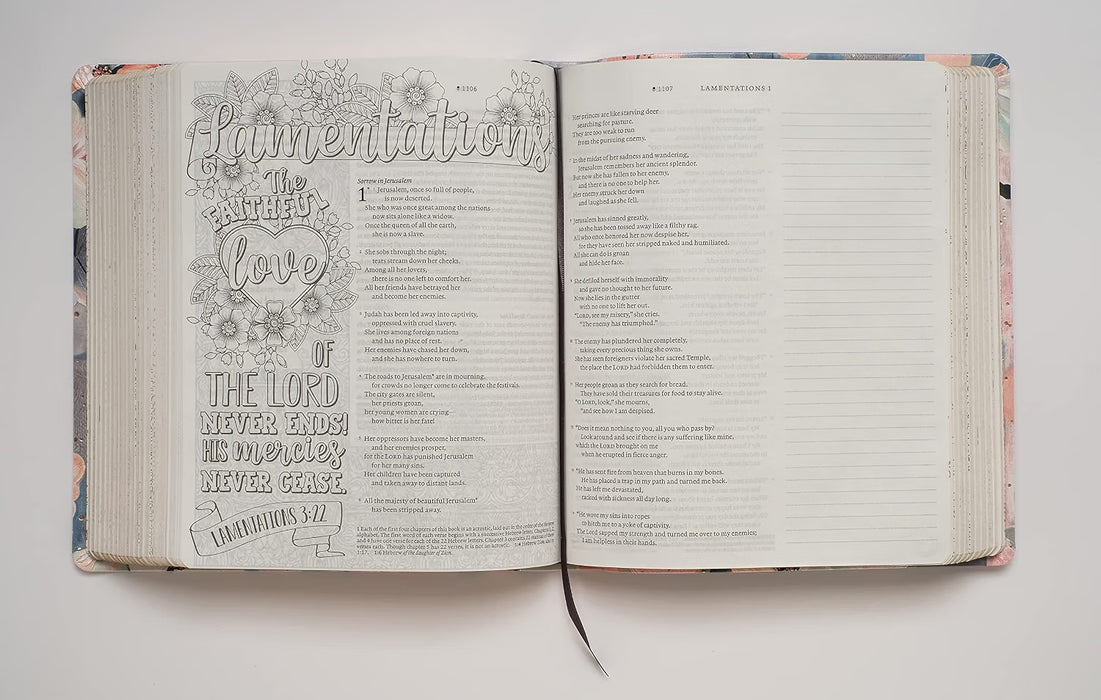 1106
Lamentations
The
FAITHFUL
love
OF
THE LORD
NEVER ENDS!
HIS mercies
NEVER CEASE.
LAMENTATIONS 3:22
Sorrow in Jerusalem
1 Jerusalem, once so full of people,
is now deserted.
She who was once great among the nations
now sits alone like a widow.
Once the queen of all the earth,
she is now a slave.
2 She sobs through the night;
tears stream down her cheeks.
Among all her lovers,
there is no one left to comfort her.
All her friends have betrayed her
and become her enemies.
3 Judah has been led away into captivity,
oppressed with cruel slavery.
She lives among foreign nations
and has no place of rest.
Her enemies have chased her down,
and she has nowhere to turn.
4 The roads to Jerusalem* are in mourning,
for crowds no longer come to celebrate the festivals.
The city gates are silent,
her priests groan,
her young women are crying—
how bitter is her fate!
5 Her oppressors have become her masters,
and her enemies prosper,
for the LORD has punished Jerusalem
for her many sins.
Her children have been captured
and taken away to distant lands.
6 All the majesty of beautiful Jerusalem*
has been stripped away.
1 Each of the first four chapters of this book is an acrostic, laid out in the order of the Hebrew
alphabet. The first word of each verse begins with a successive Hebrew letter. Chapters 1, 2,
and 4 have one verse for each of the 22 Hebrew letters. Chapter 3 contains
verses each. Though chapter 5 has 22 verses, it is not an acrostic. 1:4 Hebrew Zion;
1:17. 1:6 Hebrew of the daughter of Zion.
1107
LAMENTATIONS 1
Her princes are like starving deer
searching for pasture.
They are too weak to run
from the pursuing enemy.
7 In the midst of her sadness and wandering,
Jerusalem remembers her ancient splendor.
But now she has fallen to her enemy,
and there is no one to help her.
Her enemy struck her down
and laughed as she fell.
8 Jerusalem has sinned greatly,
so she has been tossed away like a filthy rag.
All who once honored her now despise her,
for they have seen her stripped naked and humiliated.
All she can do is groan
and hide her face.
9 She defiled herself with immorality
and gave no thought to her future.
Now she lies in the gutter
with no one to lift her out.
“LORD, see my misery,” she cries.
“The enemy has triumphed.”
10 The enemy has plundered her completely,
taking every precious thing she owns.
She has seen foreigners violate her sacred Temple,
the place the LORD had forbidden them to enter.
11 Her people groan as they search for bread.
They have sold their treasures for food to stay alive.
“O LORD, look,” she mourns,
“and see how I am despised.
12 “Does it mean nothing to you, all you who pass by?
Look around and see if there is any suffering like mine,
which the LORD brought on me
when he erupted in fierce anger.
13 “He has sent fire from heaven that burns in my bones.
He has placed a trap in my path and turned me back.
He has left me devastated,
racked with sickness all day long.
14 “He wove my sins into ropes
to hitch me to a yoke of captivity.
The Lord sapped my strength and turned me over to my enemies;
I am helpless in their hands.